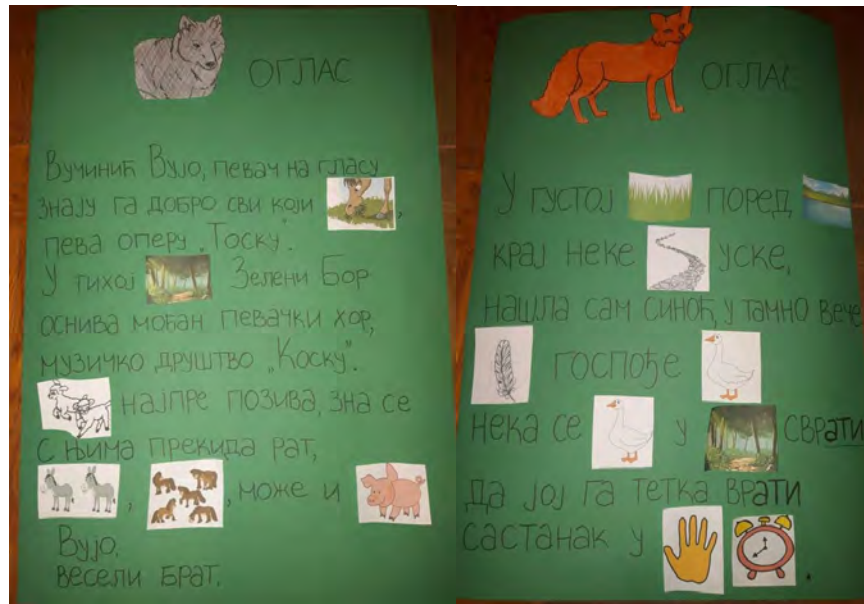 ОГЛАС
Вучинић Вујо, певач на гласу
знају га добро сви који ,
пева оперу „Тоску".
У тихој Зелени Бор
оснива моћан певачки хор,
музичко друштво „Коску".
најпре позива, зна се
с њима прекида рат,
, , може и
Вујо,
весели брат.
ОГЛАС
У густој поред
крај неке уске,
нашла сам синоћ, у тамно вече
госпође
нека се у сврати
да јој га тетка врати
састанак у .